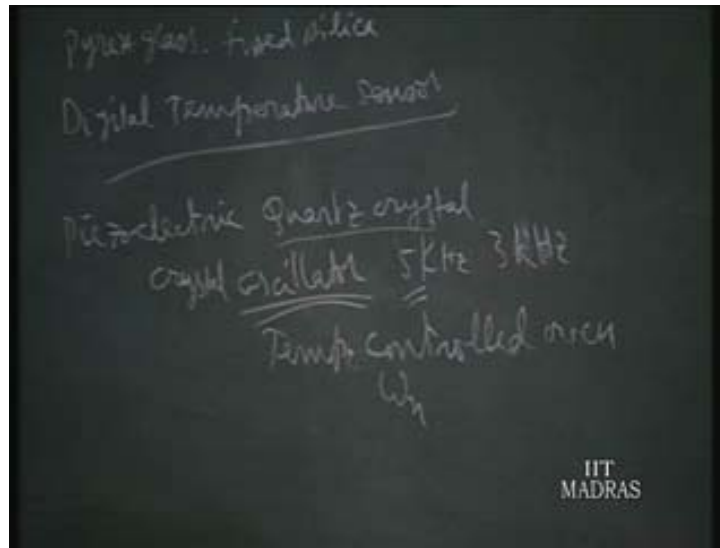 Pyrex glass. fused silica
Digital Temperature Sensor
Piezoelectric Quartz crystal
crystal oscillator 5KHz 3KHz
Temp. controlled oven
Wn
IIT
MADRAS